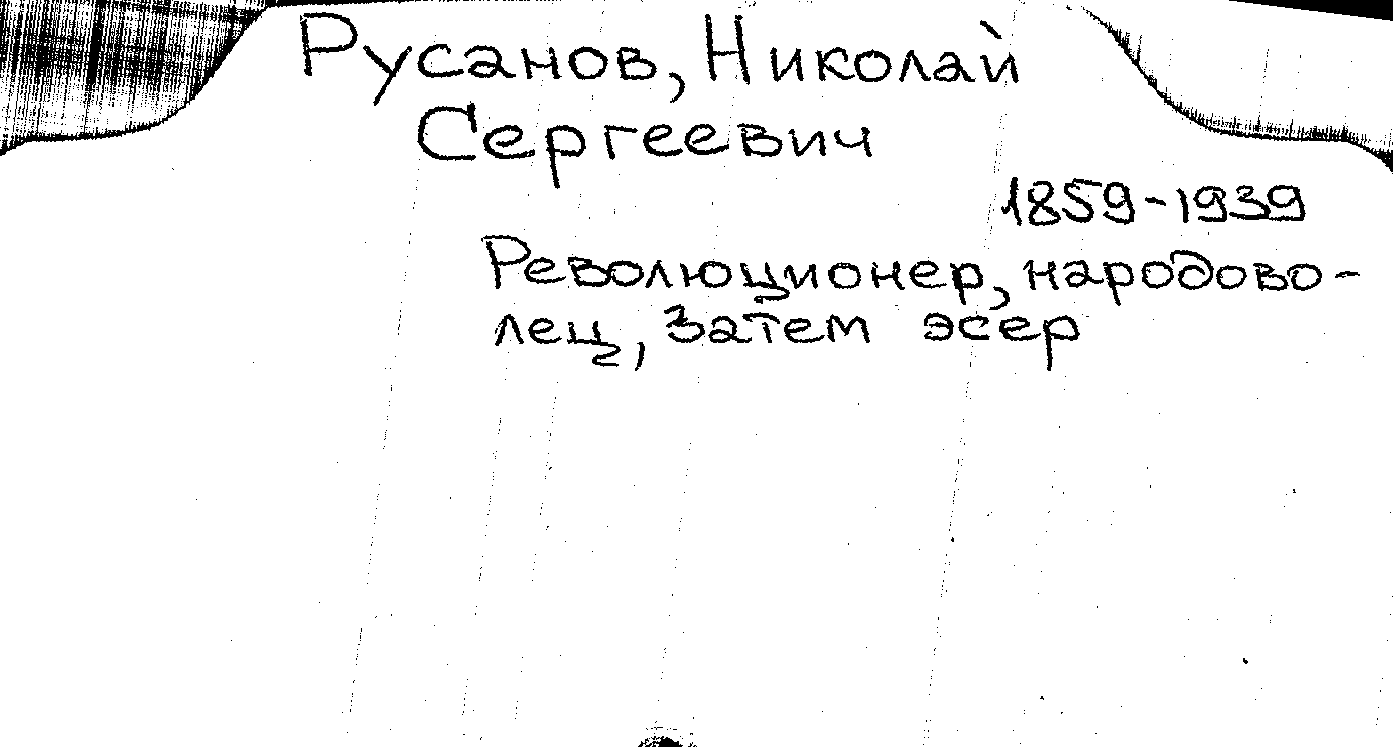 Русанов, Николай
Сергеевич
1859-1939
Революционер, народово-
лец, затем эсер